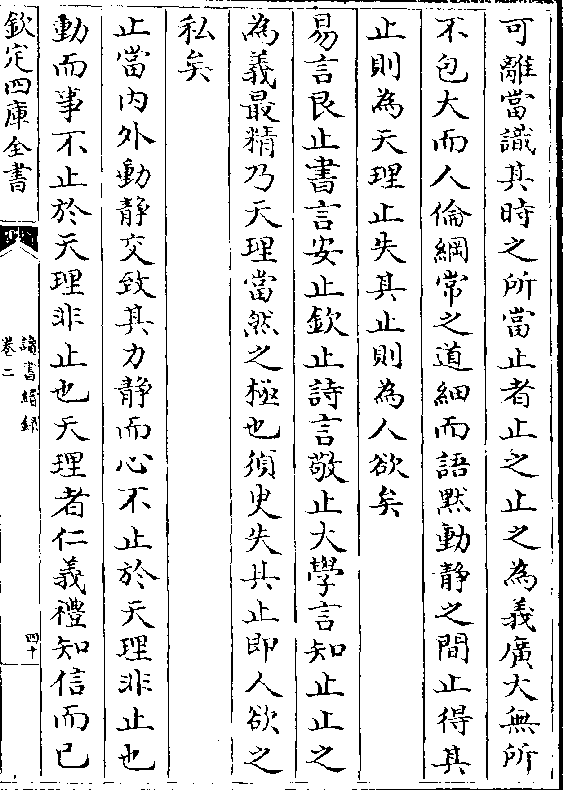 可離當識其時之所當止者止之止之為義廣大無所
不包大而人倫綱常之道細而語黙動靜之間止得其
止則為天理止失其止則為人欲矣
易言艮止書言安止欽止詩言敬止大學言知止止之
為義最精乃天理當然之極也須臾失其止即人欲之
私矣
止當内外動靜交致其力靜而心不止於天理非止也
動而事不止於天理非止也天理者仁義禮知信而已
欽定四庫全書
讀書續録
卷二
四十